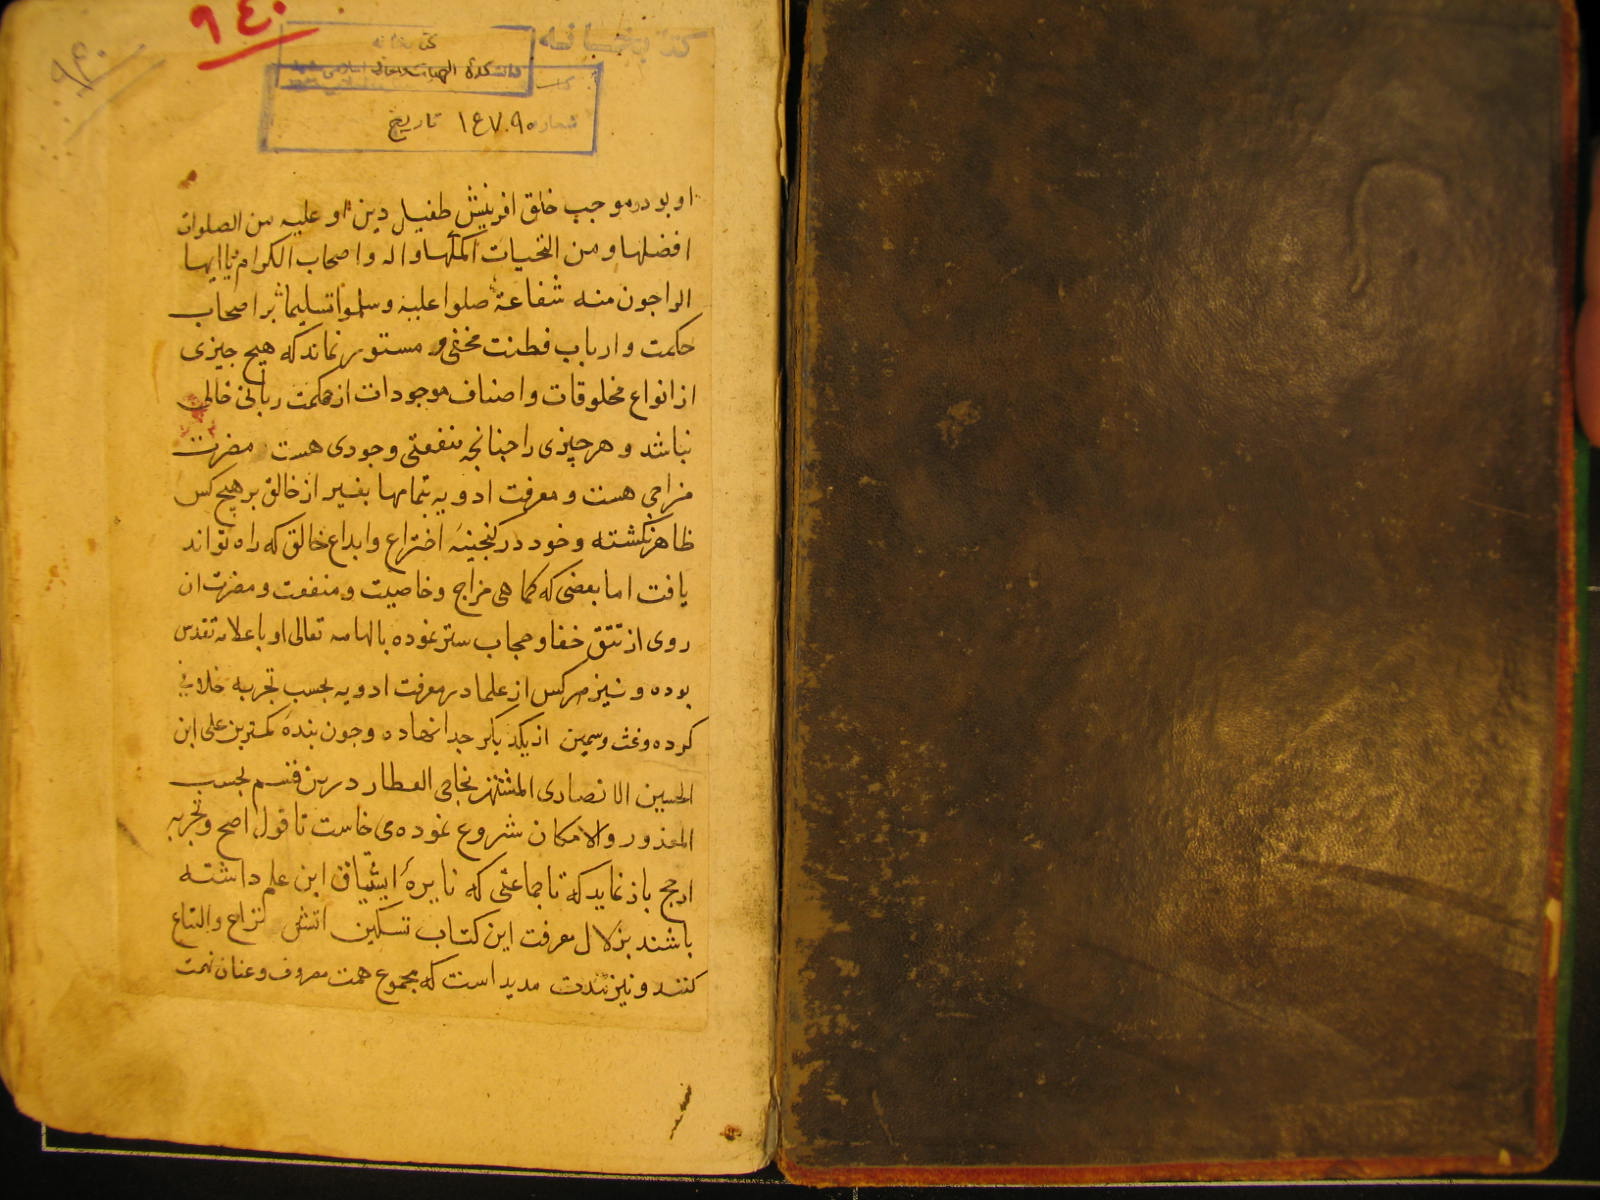 ۹٤۰
۹۴۰
کتابخانه
کتابخانه
دانشکدهٔ الهیات و معارف اسلامی مشهد
شماره ۱٤۷۰۹ تاریخ
او بود و موجب خلق افرینش طفیل دین او علیه من الصلوات
افضلها و من التحیات اکملها و اله و اصحاب الکرام یا ایها
الراجون منه شفاعة صلوا علیه و سلموا تسلیما بر اصحاب
حکمت و ارباب فطنت مخفی و مستور نماند که هیچ چیزی
از انواع مخلوقات و اصناف موجودات از حکمت ربانی خالی
نباشد و هر چیزی را چنانچه منفعتی وجودی هست مضرت
مزاجی هست و معرفت ادویه بتمامها بغیر از خالق بر هیچ کس
ظاهر نکشته و خود در کنجینهٔ اختراع و ابداع خالق که راه تواند
یافت اما بعضی که کما هی مزاج و خاصیت و منفعت و مضرت ان
روی از تتق خفا و حجاب ستر نموده بالهامه تعالی او باعلامه تقدس
بوده و نیز هر کس از علما در معرفت ادویه بحسب تجربه خلافی
کرده و غث و سمین از یکدیگر جدا نهاده و چون بندهٔ کمترین علی ابن
الحسین الانصاری المشتهر بحاجی العطار درین قسم بحسب
المقدور والامکان شروع نموده می خاست تا قول اصح و تجربه
ارجح باز نماید که تا جماعتی که نایرهٔ اشتیاق این علم داشته
باشند بزلال معرفت این کتاب تسکین اتش نزاع و التیاع
کنند و نیز مدت مدید است که مجموع همت مصروف و عنان نهمت